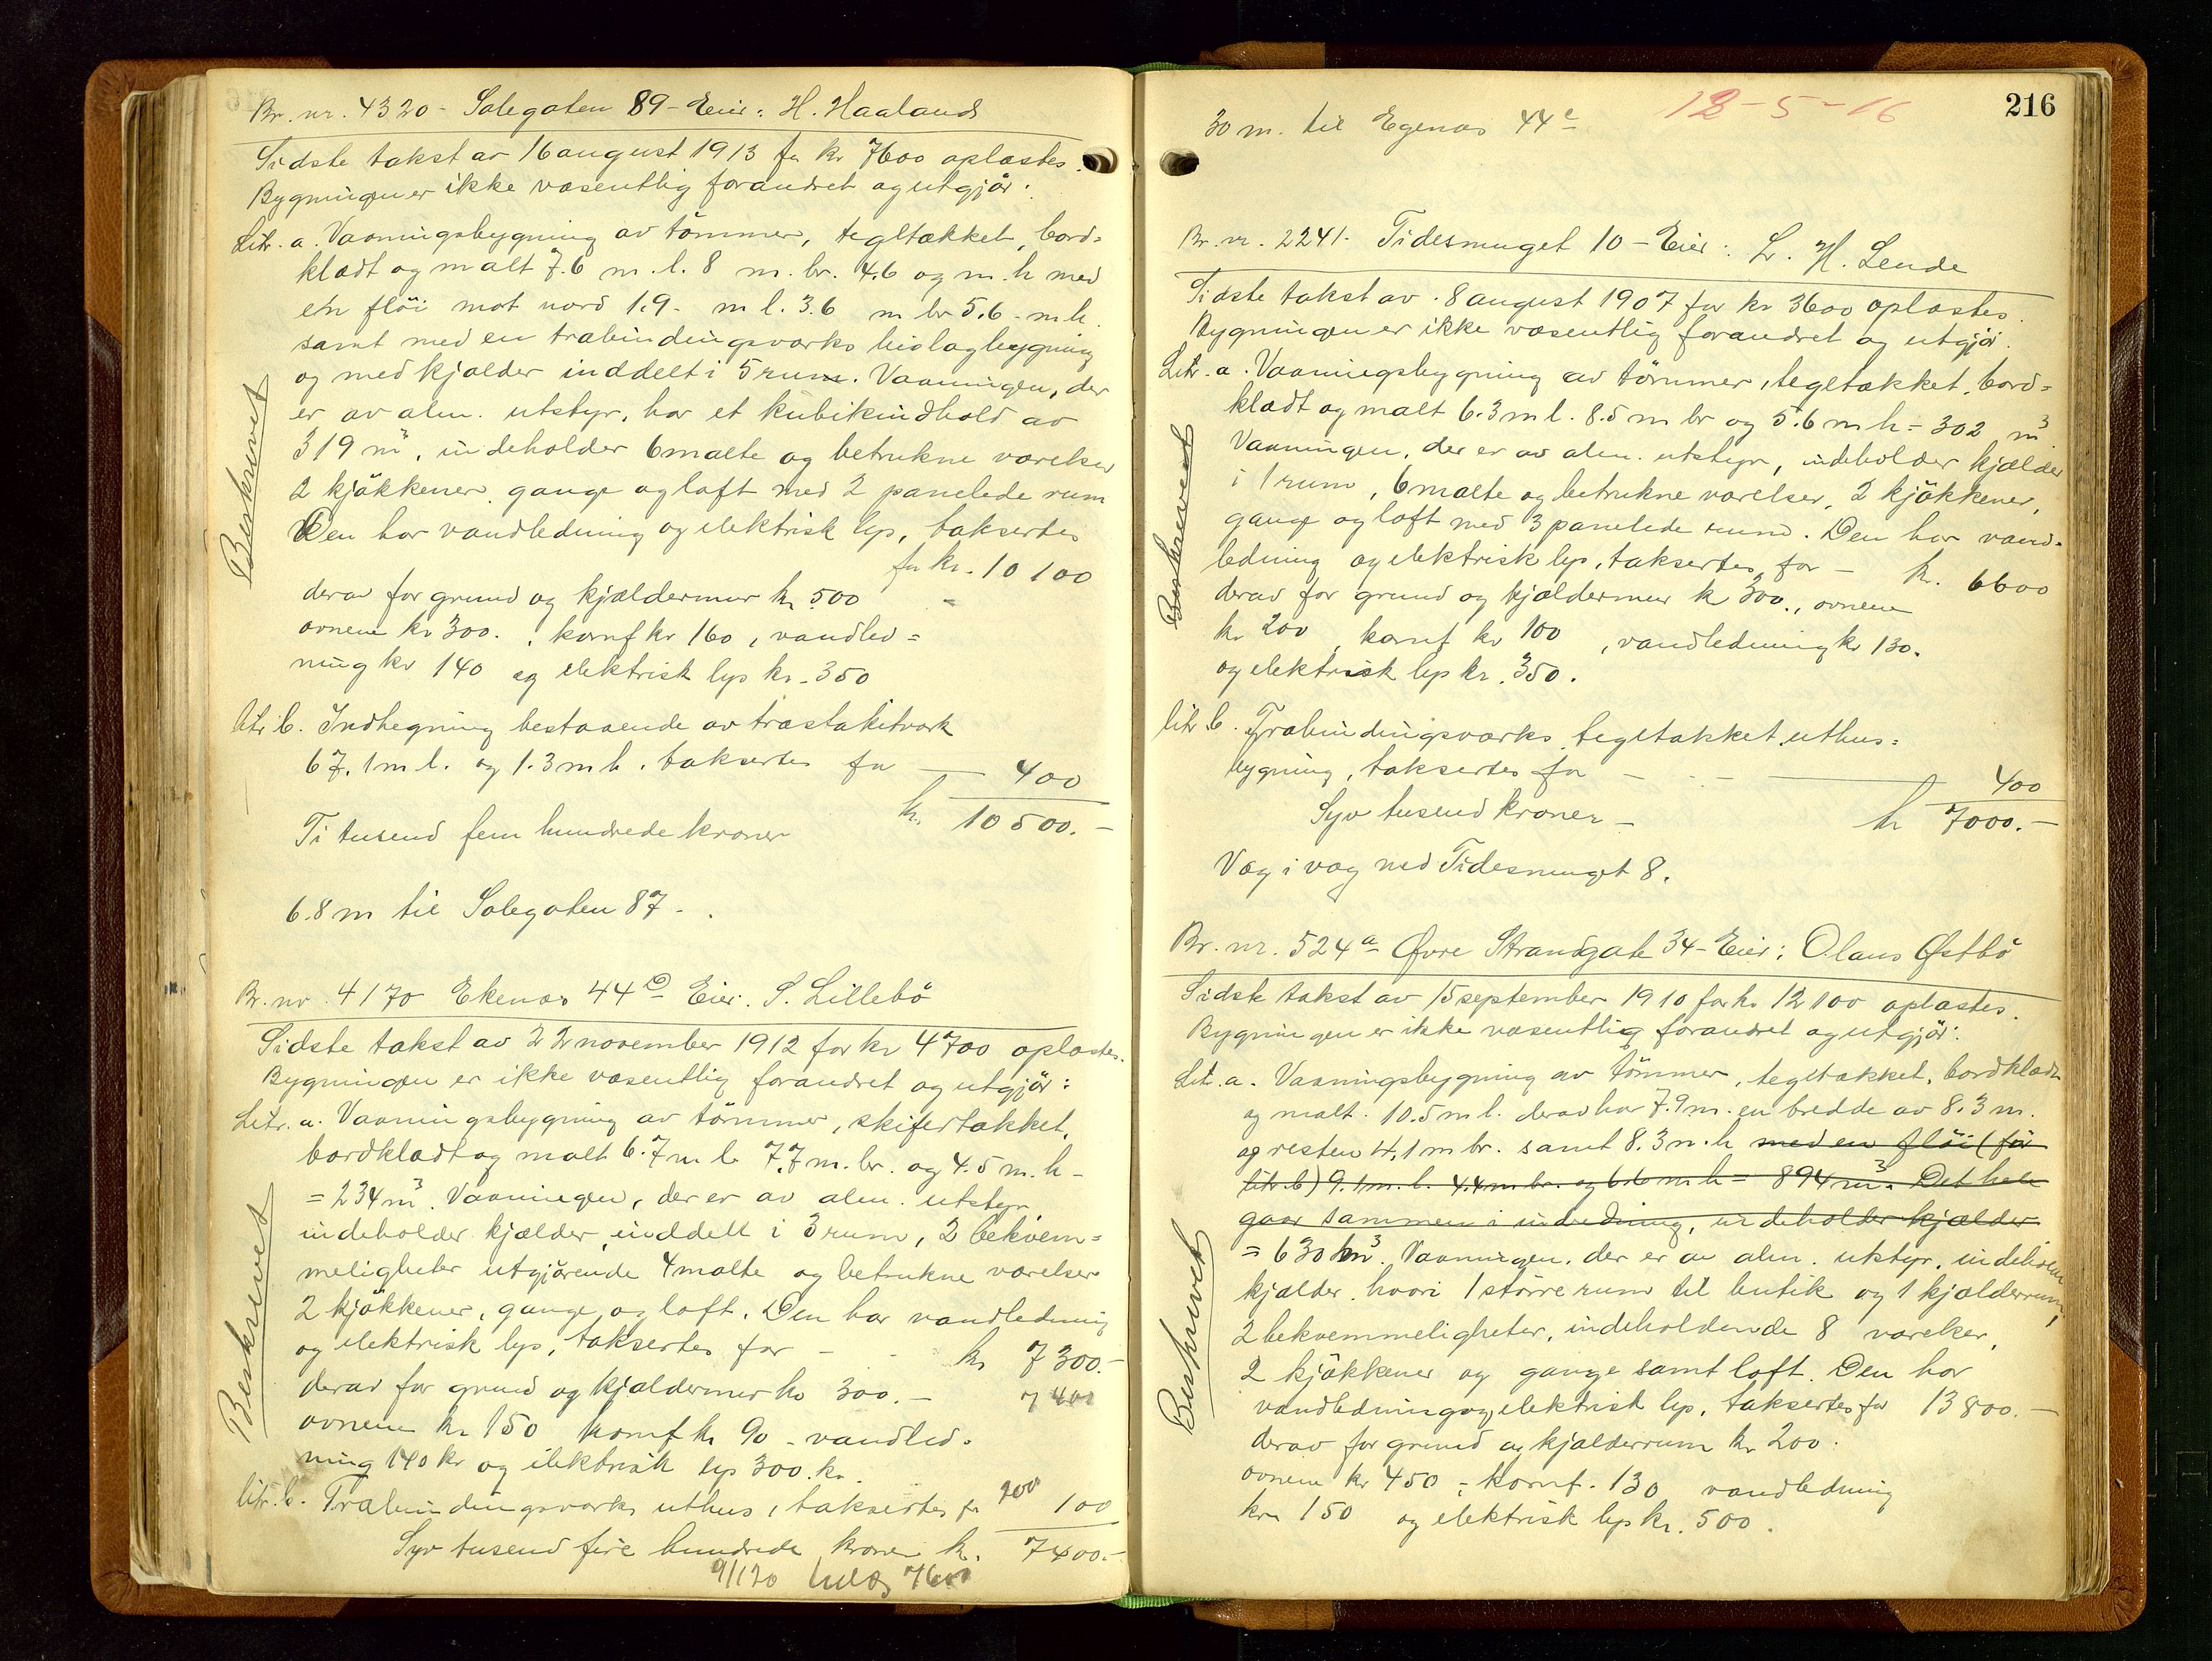 Br. nr. 4320 - Solegaten 89 - Eier: H. Haaland
Sidste takst av 16 august 1913 for kr 7600 oplæstes.
Bygningen er ikke væsentlig forandret og utgjör:
Litr. a. Vaaningsbygning av tömmer, tegltækket, bord=
klædt og malt 7.6 m. l. 8 m. br. 4.6 og m. h med
en flöi mot nord 1.9 - m l. 3.6 m br 5.6 - m h.
samt med en træbindingsværks bislagbygning
og med kjælder inddelt i 5 rum. Vaaningen, der
er av alm. utstyr, har et kubikindhold av
319 m³, indeholder 6 malte og betrukne værelser
2 kjökkener, gange og loft med 2 panelede rum
Den har vandledning og elektrisk lys, taksertes
for kr. 10 100
derav for grund og kjældermur kr 500
ovnene kr 300. , komf kr 160, vandled=
ning kr 140 og elektrisk lys kr. 350
Beskrevet
litr b. Indhegning bestaaende av træstakitværk
67.1 m l. og 1.3 m h. taksertes for — 400
Ti tusend fem hundrede kroner kr. 10 500.-
6.8 m til Solegaten 87 -
Br. nr. 4170 Ekenæs 44 c Eier: S. Lillebö
Sidste takst av 22 november 1912 for kr 4700 oplæstes.
Bygningen er ikke væsentlig forandret og utgjör:
Litr. a. Vaaningsbygning av tömmer, skifertækket,
bordklædt og malt 6.7 m l. 7.7 m. br. og 4.5 m. h -
= 234 m³. Vaaningen, der er av alm. utstyr
indeholder kjælder, inddelt i 3 rum, 2 bekvem=
meligheter utgjörende 4 malte og betrukne værelser
2 kjökkener, gange og loft. Den har vandledning
og elektrisk lys, taksertes for - - kr 7 300.-
derav for grund og kjældermur kr 300. - 7400
ovnene kr 150 komf kr 90 - vandled=
ning 140 kr og elektrisk lys 300 kr.
Beskrevet
litr. b. Træbindingsværks uthus, taksertes for 200 100
Syv tusend fire hundrede kroner kr. 7400.-
9/1 20 7600
216
12-5-16
30 m. til Egenæs 44 c
Br. nr. 2241. Tidesmuget 10 - Eier: L. H. Lende
Sidste takst av 8 august 1907 for kr 3600 oplæstes.
Bygningen er ikke væsentlig forandret og utgjör.
Litr. a. Vaaningsbygning av tömmer, tegltækket, bord=
klædt og malt 6.3 m l. 8.5 m br og 5.6 m h = 302 m³
Vaaningen, der er av alm. utstyr, indeholder kjælder
i 1 rum, 6 malte og betrukne værelser, 2 kjökkener,
gange og loft med 3 panelede rum. Den har vand=
ledning og elektrisk lys, taksertes for - kr. 6600
derav for grund og kjældermur kr 300., ovnene
kr 200, komf kr 100, vandledning kr 130.
og elektrisk lys kr. 350.
Beskrevet
litr b. Træbindingsværks tegltækket uthus=
bygning, taksertes for - - - 400
Syv tusend kroner - kr 7000.-
Væg i væg med Tidesmuget 8.
Br. nr. 524 a Øvre Strandgate 34 - Eier: Olaus Østbö
Sidste takst av 15 september 1910 for kr 12 100 oplæstes.
Bygningen er ikke væsentlig forandret og utgjör:
Litr. a. Vaaningsbygning av tömmer, tegltækket, bordklædt
og malt. 10.5 m l. derav har 7.9 m. en bredde av 8.3 m.
og resten 4.1 m br. samt 8.3 m. h med en flöi (för
litr. b) 9.1 m. l. 4.4 m br. og 6.6 m h = 894 m³. Det hele
gaar sammen i indredning, indeholder kjælder
= 630 m³. Vaaningen, der er av alm. utstyr, indeholder
kjælder, hvori 1 större rum til butik og 1 kjælderrum,
2 bekvemmeligheter, indeholdende 8 værelser,
2 kjökkener og gange samt loft. Den har
vandledning og elektrisk lys, taksertes for 13 800. -
derav for grund og kjælderrum kr 200.
ovnene kr 450 , komf. 130 vandledning
kr 150 og elektrisk lys kr. 500.
Beskrevet